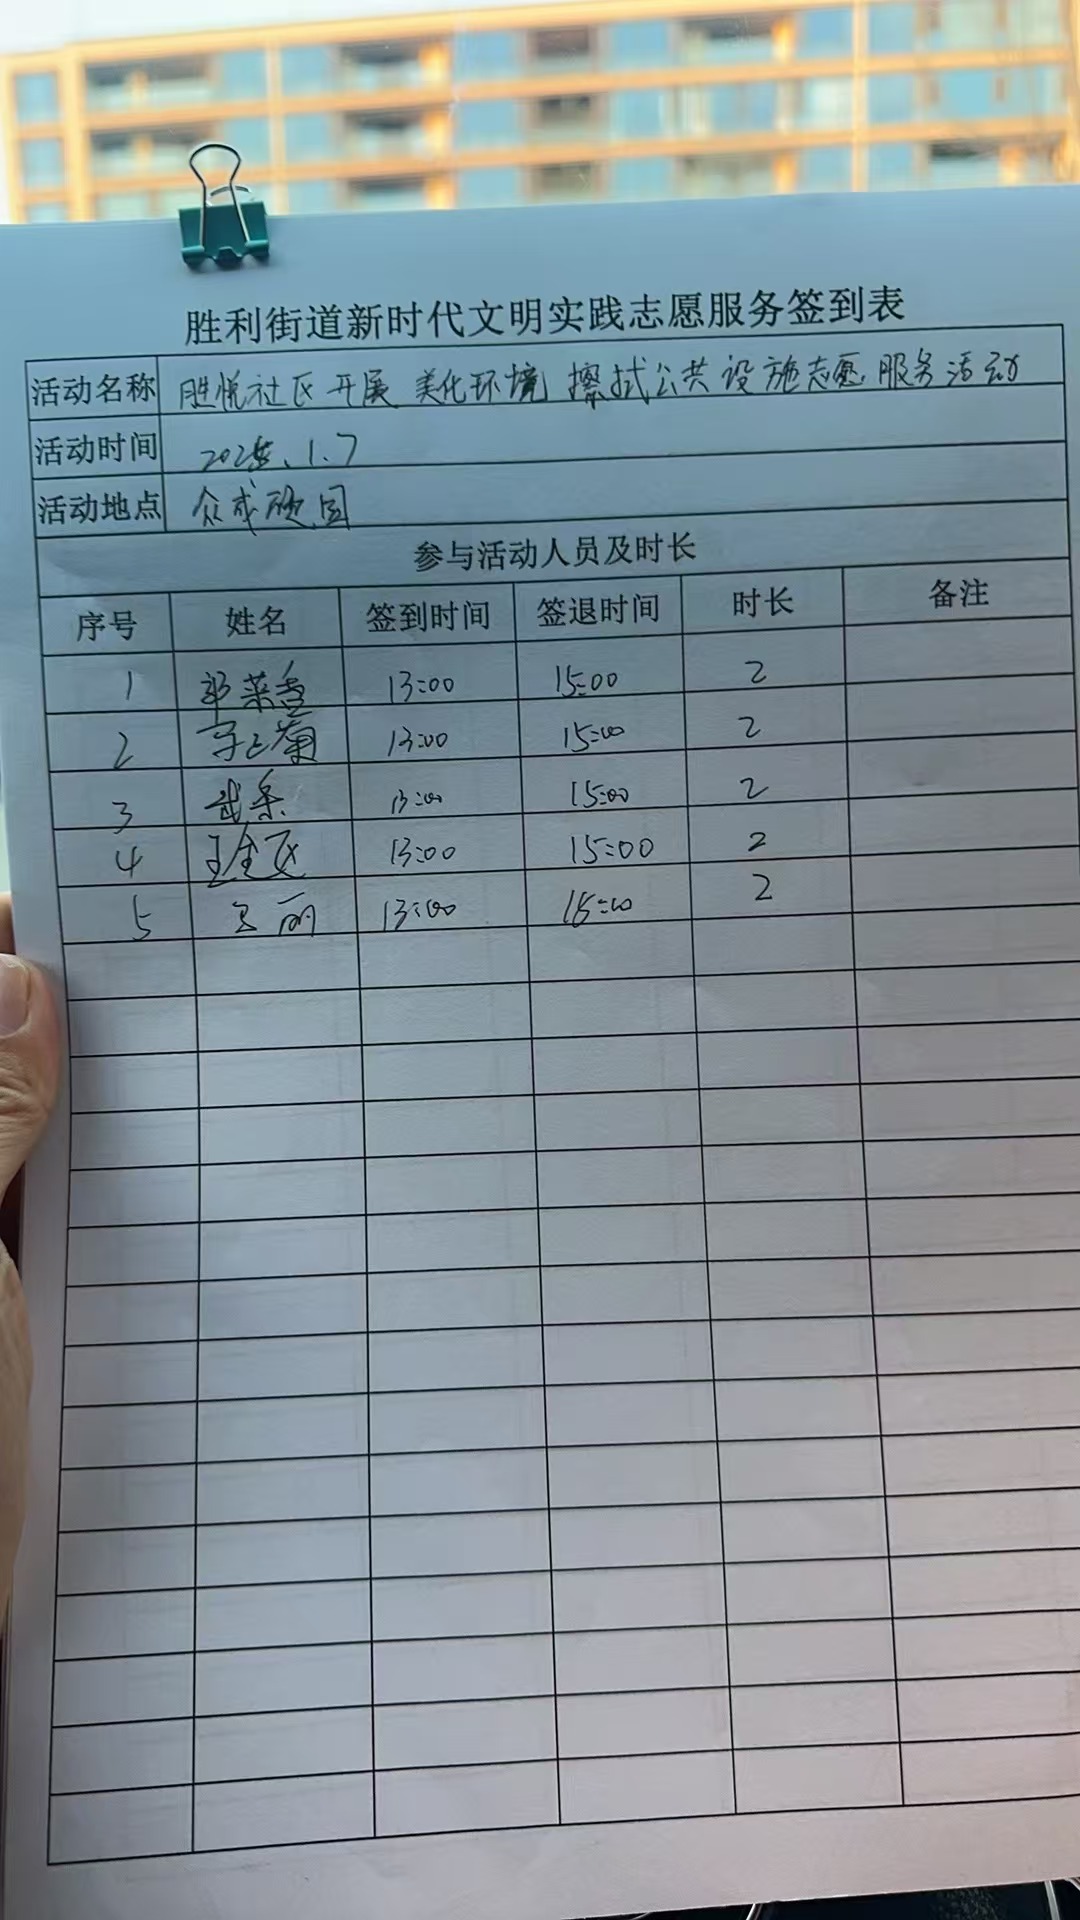 胜利街道新时代文明实践志愿服务签到表
活动名称 胜悦社区开展美化环境擦拭公共设施志愿服务活动
活动时间 2025.1.7
活动地点 众成颐园
参与活动人员及时长
序号 姓名 签到时间 签退时间 时长 备注
1 邓荣香 13:00 15:00 2
2 13:00 15:00 2
3 武柔 13:00 15:00 2
4 王金民 13:00 15:00 2
5 丽 13:00 15:00 2